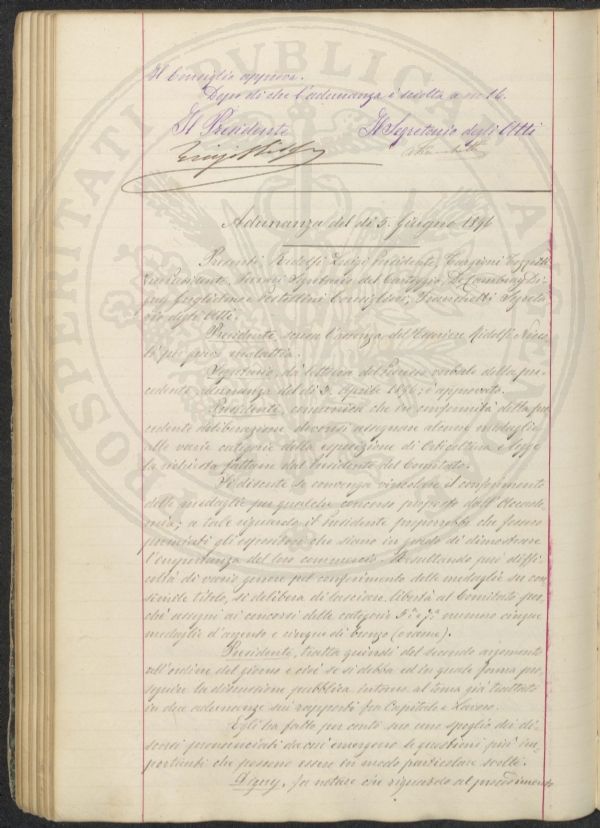 Il Consiglio approva.
Dopo di che l'adunanza è sciolta a ore 16.
Il Presidente Il Segretario degli Atti
Adunanza del dì 5. Giugno 1896
Presenti Ridolfi Luigi Presidente, Targioni Tozzetti
Vice Presidente, Segretario del Carteggio, De Cambray Di-
gny Guglielmo e Pestellini Consiglieri, Franchetti Segreta-
rio degli Atti.
Presidente, scusa l'assenza del Tesoriere Ridolfi Nicco-
lò per grave malattia.
Segretario, dà lettura del Processo verbale della pre-
cedente adunanza del dì 3. Aprile 1896; è approvato.
Presidente, comunica che in conformità della pre-
cedente deliberazione dovendosi assegnare alcune medaglie
alle varie categorie della esposizione di Orticultura e legge
la richiesta fattane dal Presidente del Comitato.
Si discute se convenga vincolare il conferimento
delle medaglie per qualche concorso proposto dall'Accade-
mia; a tale riguardo il Presidente proporrebbe che fossero
premiati gli espositori che siano in grado di dimostrare
l'importanza del loro commercio. Resultando però diffi-
coltà di vario genere pel conferimento delle medaglie su con-
simile titolo, si delibera di lasciare libertà al Comitato per-
chè assegni ai concorsi delle categorie numero cinque
medaglie d'argento e cinque di bronzo (rame).
Presidente, tratta quindi del secondo argomento
all'ordine del giorno e cioè se si debba ed in quale forma pro-
seguire la discussione pubblica intorno al tema già trattato
in due adunanze sui rapporti fra Capitale e Lavoro.
Egli ha fatto per conto suo uno spoglio dei di-
scorsi pronunciati da cui emergono le questioni più im-
portanti che possono essere in modo particolare svolte.
Digny, fa notare che riguardo al procedimento
PROSPERITATI PUBLICAE AUGENDAE